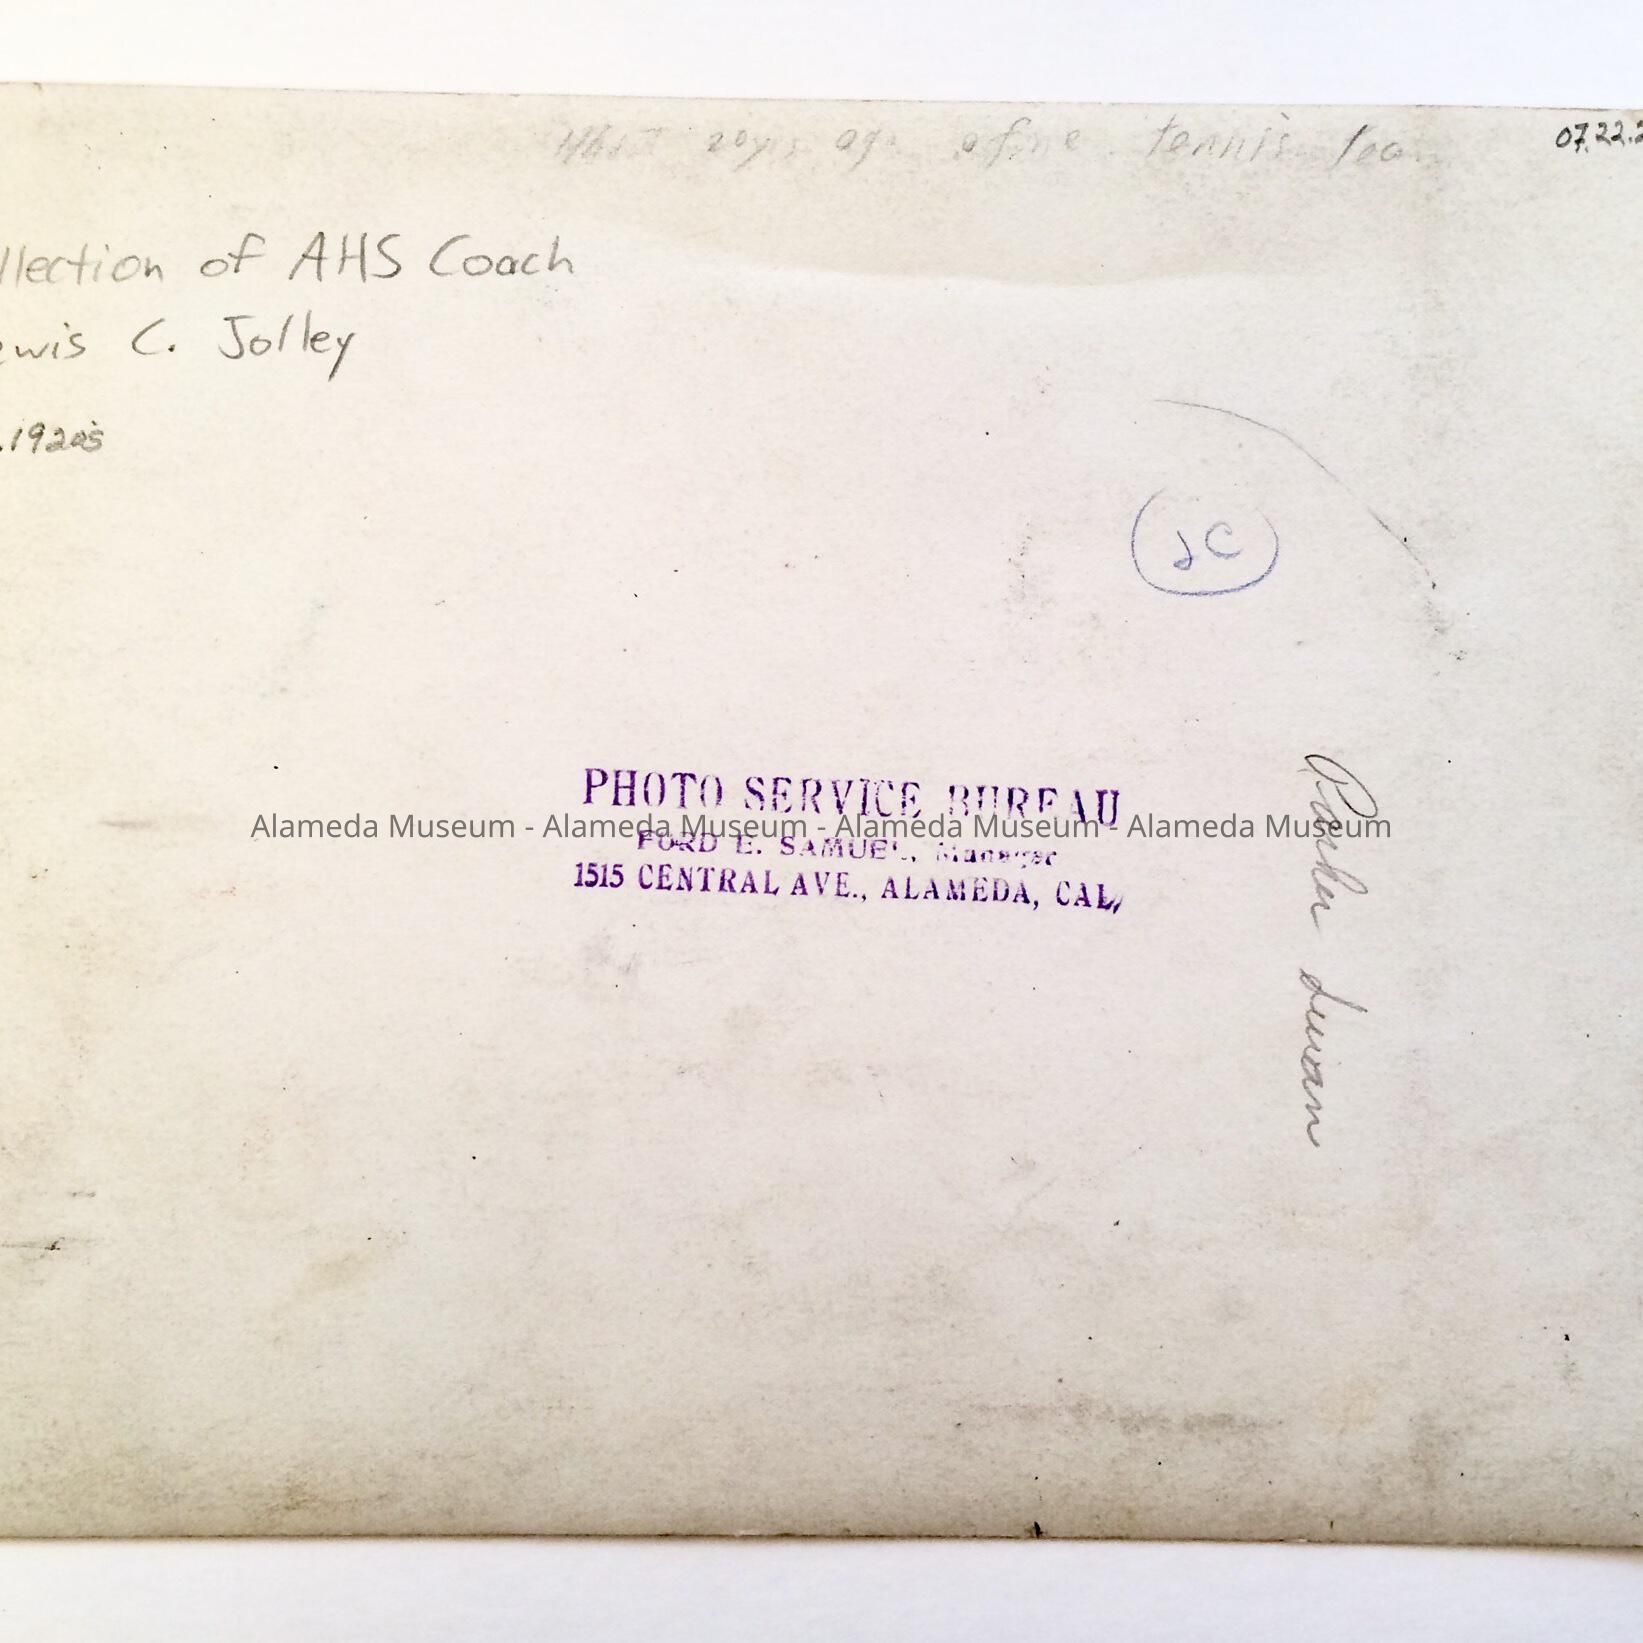 20 yrs ago a fine tennis
07.22.2
llection of AHS Coach
ewis C. Jolley
.1920s
JC
PHOTO SERVICE BUREAU
Alameda Museum - Alameda Museum - Alameda Museum - Alameda Museum
FORD E. SAMUEL, Manager
1515 CENTRAL AVE., ALAMEDA, CAL,